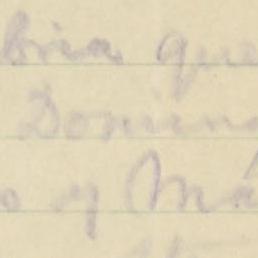 bria que
Domin
o y Má